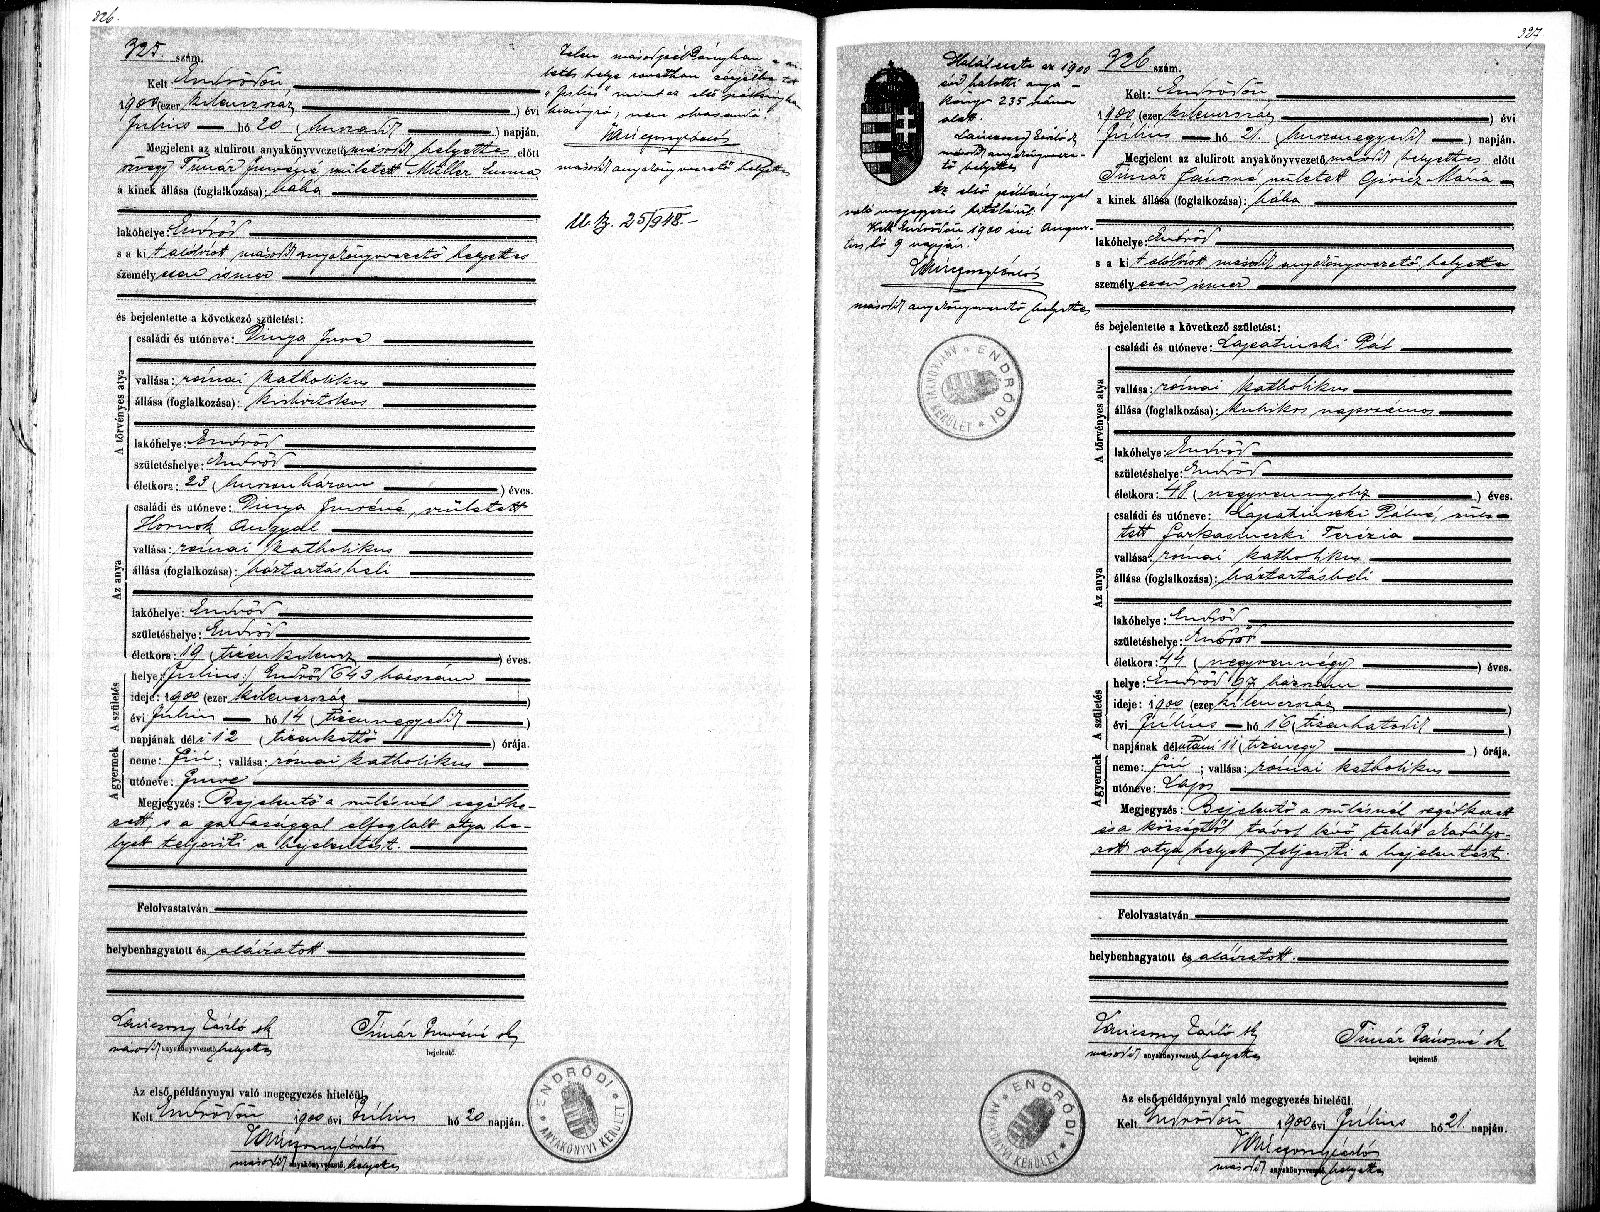 326.
325 szám.
Kelt Endrődön,
1900 (ezer kilencszáz) évi
Julius hó 20 (huszadik) napján.
Megjelent az alulirott anyakönyvvezető második helyettes előtt
özvegy Timár Imréné született Müller Emma
a kinek állása (foglalkozása): bába
lakóhelye: Endrőd
s a kit alólirott második anyakönyvvezető helyettes
személyesen ismer
és bejelentette a következő születést:
A törvényes atya
családi és utóneve: Dinya Imre
vallása: római katholikus
állása (foglalkozása): kisbirtokos
lakóhelye: Endrőd
születéshelye: Endrőd
életkora: 23 (huszonhárom) éves.
Az anya
családi és utóneve: Dinya Imréné, született
Hornok Angyal
vallása: római katholikus
állása (foglalkozása): háztartásbeli
lakóhelye: Endrőd
születéshelye: Endrőd
életkora: 19 (tizenkilencz) éves.
A születés
helye: (Julius:) Endrőd 643 házszám
ideje: 1900 (ezer kilencszáz)
évi Julius hó 14 (tizennegyedik)
napjának déli 12 (tizenkettő) órája.
A gyermek
neme: fiú; vallása: római katholikus
utóneve: Imre
Megjegyzés: Bejelentő a szülésnél segédke-
zett, s a gazdasággal elfoglalt atya he-
lyett teljesíti a bejelentést.
Felolvastatván
helybenhagyatott és aláiratott.
Lánczony László sk
második anyakönyvvezető helyettes
Timár Imréné sk,
bejelentő.
Az első példánynyal való megegyezés hiteléül.
Kelt Endrődön 1900 évi Julius hó 20 napján.
második anyakönyvvezető helyettes
ENDRŐDI ANYAKÖNYVI KERÜLET
Jelen másodpéldányban a szü-
letés helye rovatban zárjelbe tett
"Julius" mint az első példányban
hiányzó, nem olvasandó.
második anyakönyvvezető helyettes
U. Bz. 25/948.-
327
Halálesete az 1900
évi halotti anya-
könyv 235 száma
alatt.
második anyakönyvveze-
tő helyettes
Az első példánynyal
való megegyezés hiteléül.
Kelt Endrődön 1900 évi Augusz-
tus hó 9 napján.
második anyakönyvvezető helyettes
ENDRŐDI ANYAKÖNYVI KERÜLET
326 szám.
Kelt: Endrődön
1900 (ezer kilencszáz) évi
Julius hó 21. (huszonegyedik) napján.
Megjelent az alulirott anyakönyvvezető második helyettes előtt
Timár Jánosné született Giricz Mária
a kinek állása (foglalkozása): bába
lakóhelye: Endrőd
s a kit alólirott második anyakönyvvezető helyettes
személyesen ismer
és bejelentette a következő születést:
A törvényes atya
családi és utóneve: Lapatinszki Pál
vallása: római katholikus
állása (foglalkozása): kubikos napszámos
lakóhelye: Endrőd
születéshelye: Endrőd
életkora: 48 (negyvennyolcz) éves.
Az anya
családi és utóneve: Lapatinszki Pálné, szüle-
tett Farkasinszki Terézia
vallása: római katholikus
állása (foglalkozása): háztartásbeli
lakóhelye: Endrőd
születéshelye: Endrőd
életkora: 44 (negyvennégy) éves.
A születés
helye: Endrőd 97 házszám
ideje: 1900 (ezer kilencszáz)
évi Julius hó 16 (tizenhatodik)
napjának délutáni 11 (tizenegy) órája.
A gyermek
neme: fiú; vallása: római katholikus
utóneve: Lajos
Megjegyzés: Bejelentő a szülésnél segédkezett
és a községtől távol lévő tehát akadályo-
zott atya helyett teljesíti a bejelentést.
Felolvastatván
helybenhagyatott és aláiratott.
Lánczony László sk
második anyakönyvvezető helyettes
Timár Jánosné sk
bejelentő
Az első példánynyal való megegyezés hiteléül.
Kelt Endrődön 1900 évi Julius hó 21. napján.
második anyakönyvvezető helyettes
ENDRŐDI ANYAKÖNYVI KERÜLET